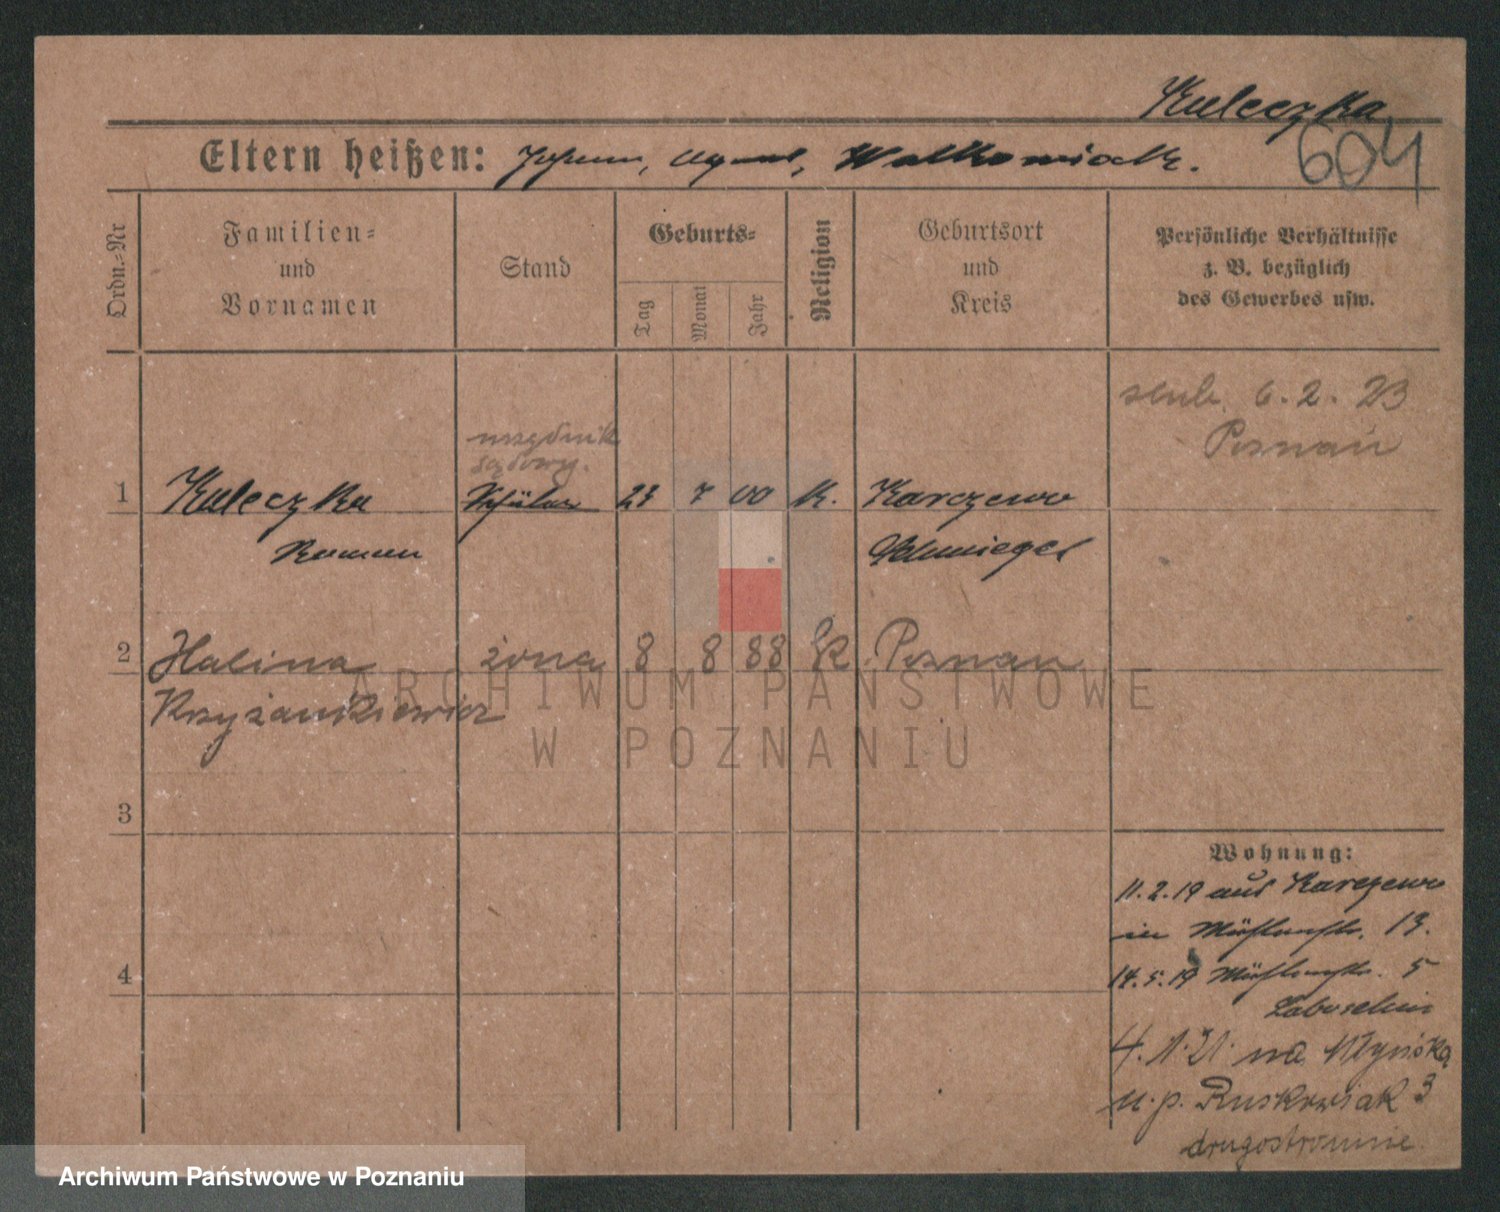 Kuleczka
604
Eltern heißen: Johann, Agnes, Walkowiak.
Ordn.-Nr
Familien-
und
Vornamen
Stand
Geburts-
Tag
Monat
Jahr
Religion
Geburtsort
und
Kreis
Persönliche Verhältnisse
z. B. bezüglich
des Gewerbes usw.
ślub. 6.2.23
Poznań
urzędnik
sądowy.
1 Kuleczka Schüler 23 7 00 K. Karczewo
Roman Schmiegel
2 Halina żona 8 8 88 K. Poznań
Krzyżankiewicz
3
4
Wohnung:
11.2.19 aus Karczewo
in Mühlenstr. 13.
14.5.19 Mühlenstr. 5
4.1.21. na Młyńską
u.p. Ruskowiak 3
drugostronnie
ARCHIWUM PAŃSTWOWE
W POZNANIU
Archiwum Państwowe w Poznaniu